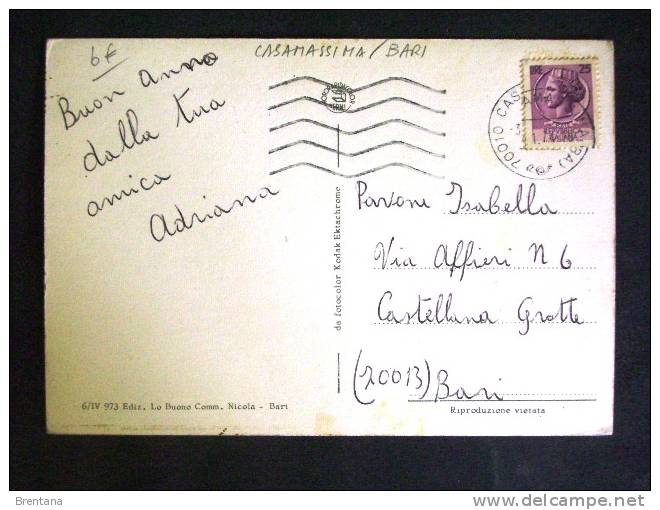 6€
CASAMASSIMA/BARI
Buon anno
dalla tua
amica
Adriana
LIRE 25
70010 CAS
(BA)
da fotocolor Kodak Ektachrome
Pavone Isabella
Via Affieri N 6
Castellana Grotte
(70013) Bari
6/IV 973 Ediz. Lo Buono Comm. Nicola - Bari
Riproduzione vietata
Brentana
delcampe.net